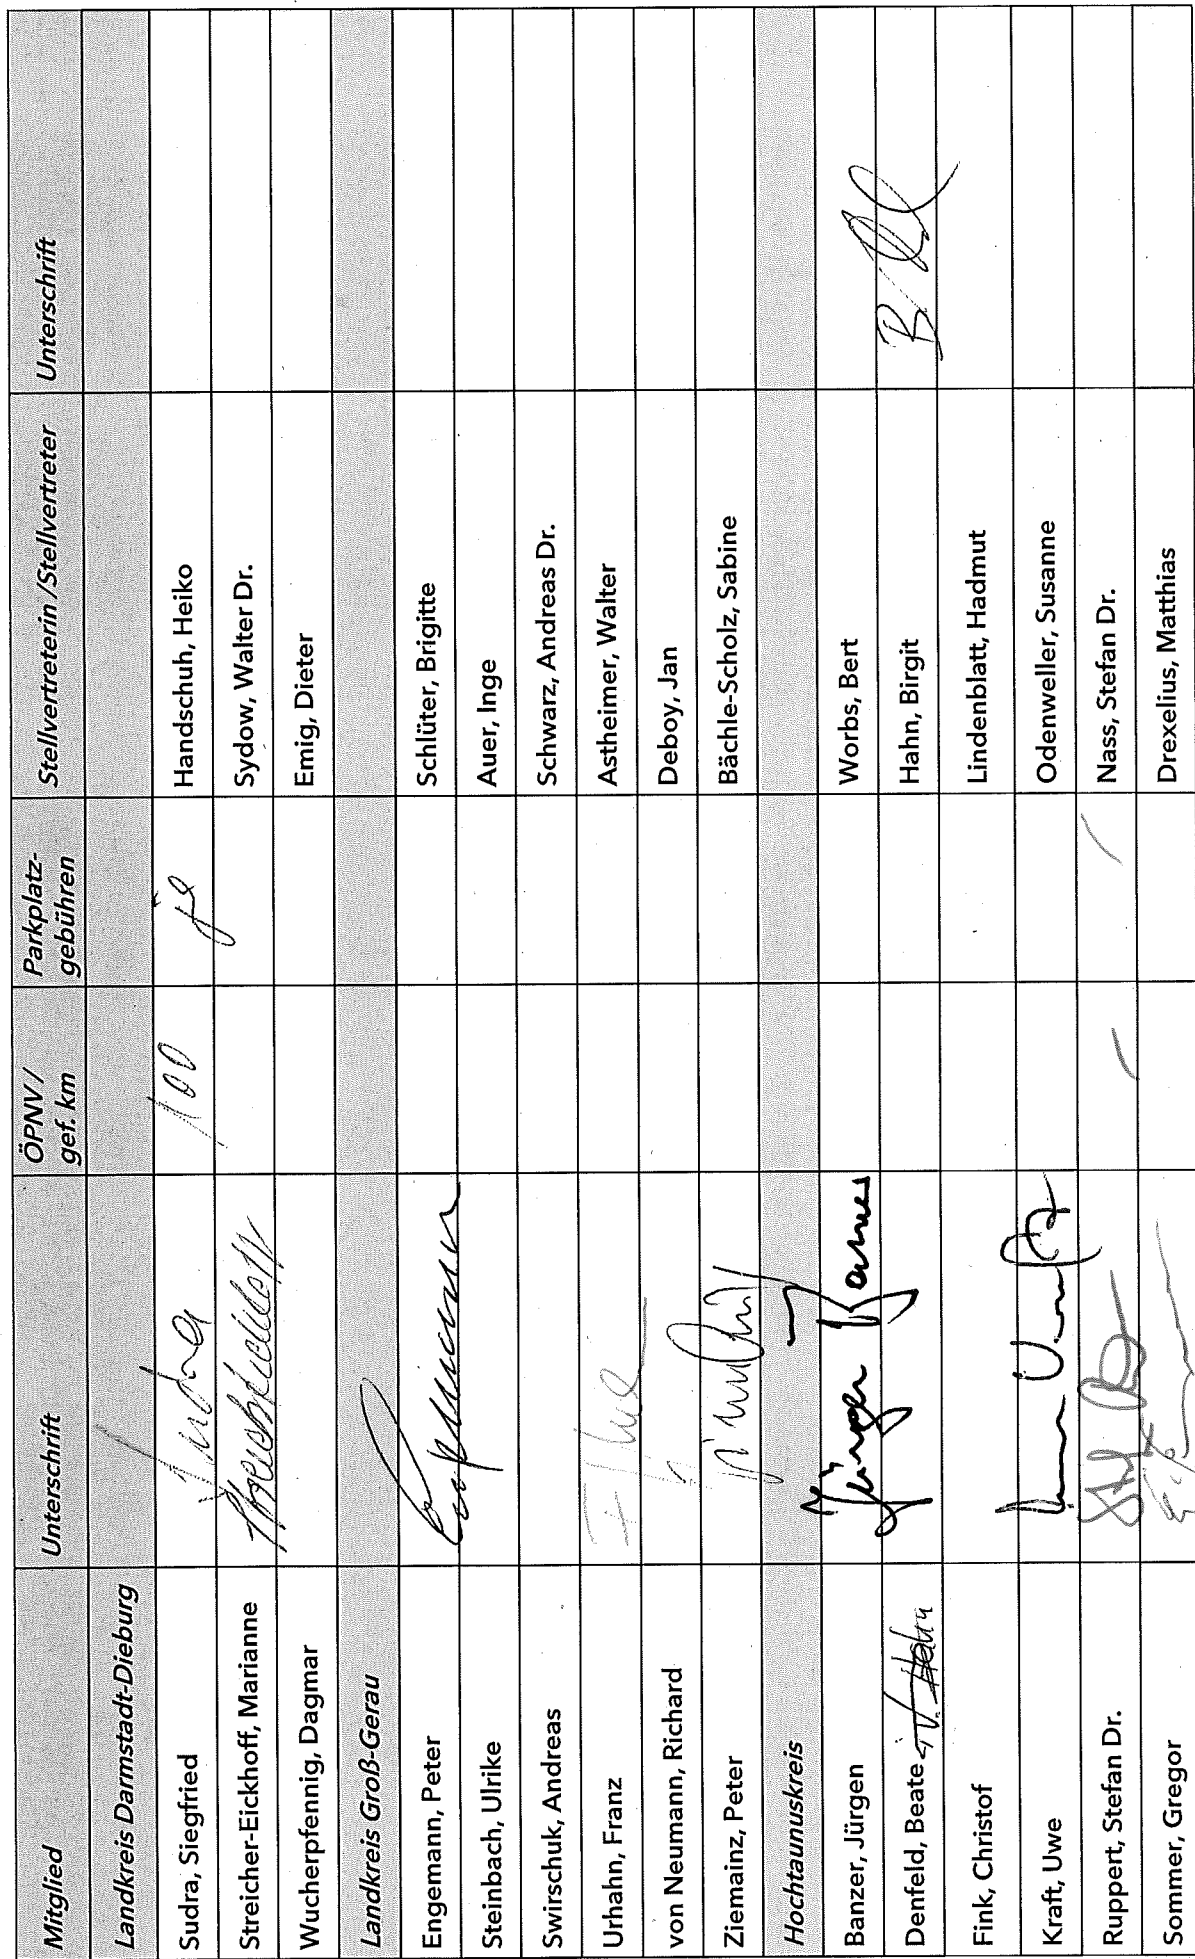 Mitglied Unterschrift ÖPNV / gef. km Parkplatz-gebühren Stellvertreterin /Stellvertreter Unterschrift
Landkreis Darmstadt-Dieburg
Sudra, Siegfried Sudra 100 Handschuh, Heiko
Streicher-Eickhoff, Marianne Sydow, Walter Dr.
Wucherpfennig, Dagmar Emig, Dieter
Landkreis Groß-Gerau
Engemann, Peter Engemann Schlüter, Brigitte
Steinbach, Ulrike Auer, Inge
Swirschuk, Andreas Schwarz, Andreas Dr.
Urhahn, Franz Astheimer, Walter
von Neumann, Richard Deboy, Jan
Ziemainz, Peter Bächle-Scholz, Sabine
Hochtaunuskreis
Banzer, Jürgen Jürgen Banzer Worbs, Bert
Denfeld, Beate Hahn, Birgit
Fink, Christof Lindenblatt, Hadmut
Kraft, Uwe Odenweller, Susanne
Ruppert, Stefan Dr. Nass, Stefan Dr.
Sommer, Gregor Drexelius, Matthias